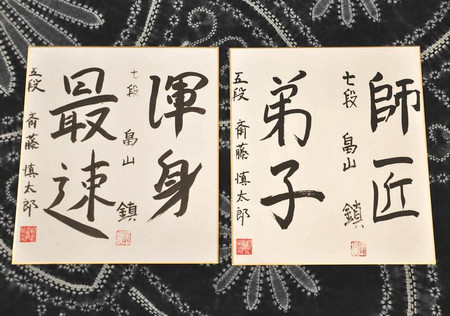 師匠
七段 畠山 鎮
弟子
五段 斎藤 慎太郎
渾身
七段 畠山 鎮
最速
五段 斎藤 慎太郎